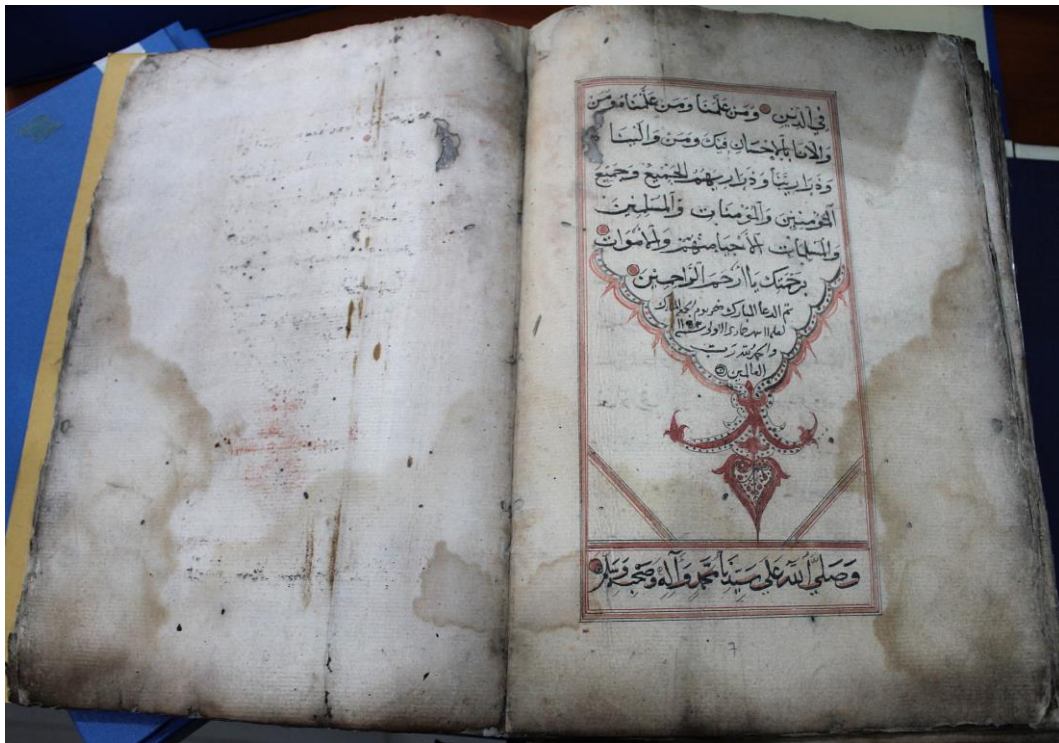 فِي الدِّينِ وَمَنْ عَلَّمَنَا وَمَنْ عَلَّمْنَاهُ وَمَنْ
وَالانَا بِالْإِحْسَانِ فِيكَ وَمَنْ وَالَيْنَا
وَذَرَارِيَّنَا وَذَرَارِيهِمُ الْجَمِيعْ وَجَمِيعْ
الْمُؤْمِنِينَ وَالْمُؤْمِنَاتِ وَالْمُسْلِمِينَ
وَالْمُسْلِمَاتِ الْأَحْيَا مِنْهُمْ وَالْأَمْوَاتْ
بِرَحْمَتِكَ يَا أَرْحَمَ الرَّاحِمِينَ
تم الدعا المبارك يوم المبارك
جمادى الاولى
والحمد لله رب
العالمين
وَصَلَّى اللّٰهُ عَلَى سَيِّدِنَا مُحَمَّدٍ وَآلِهِ وَصَحْبِهِ وَسَلَّمَ
7